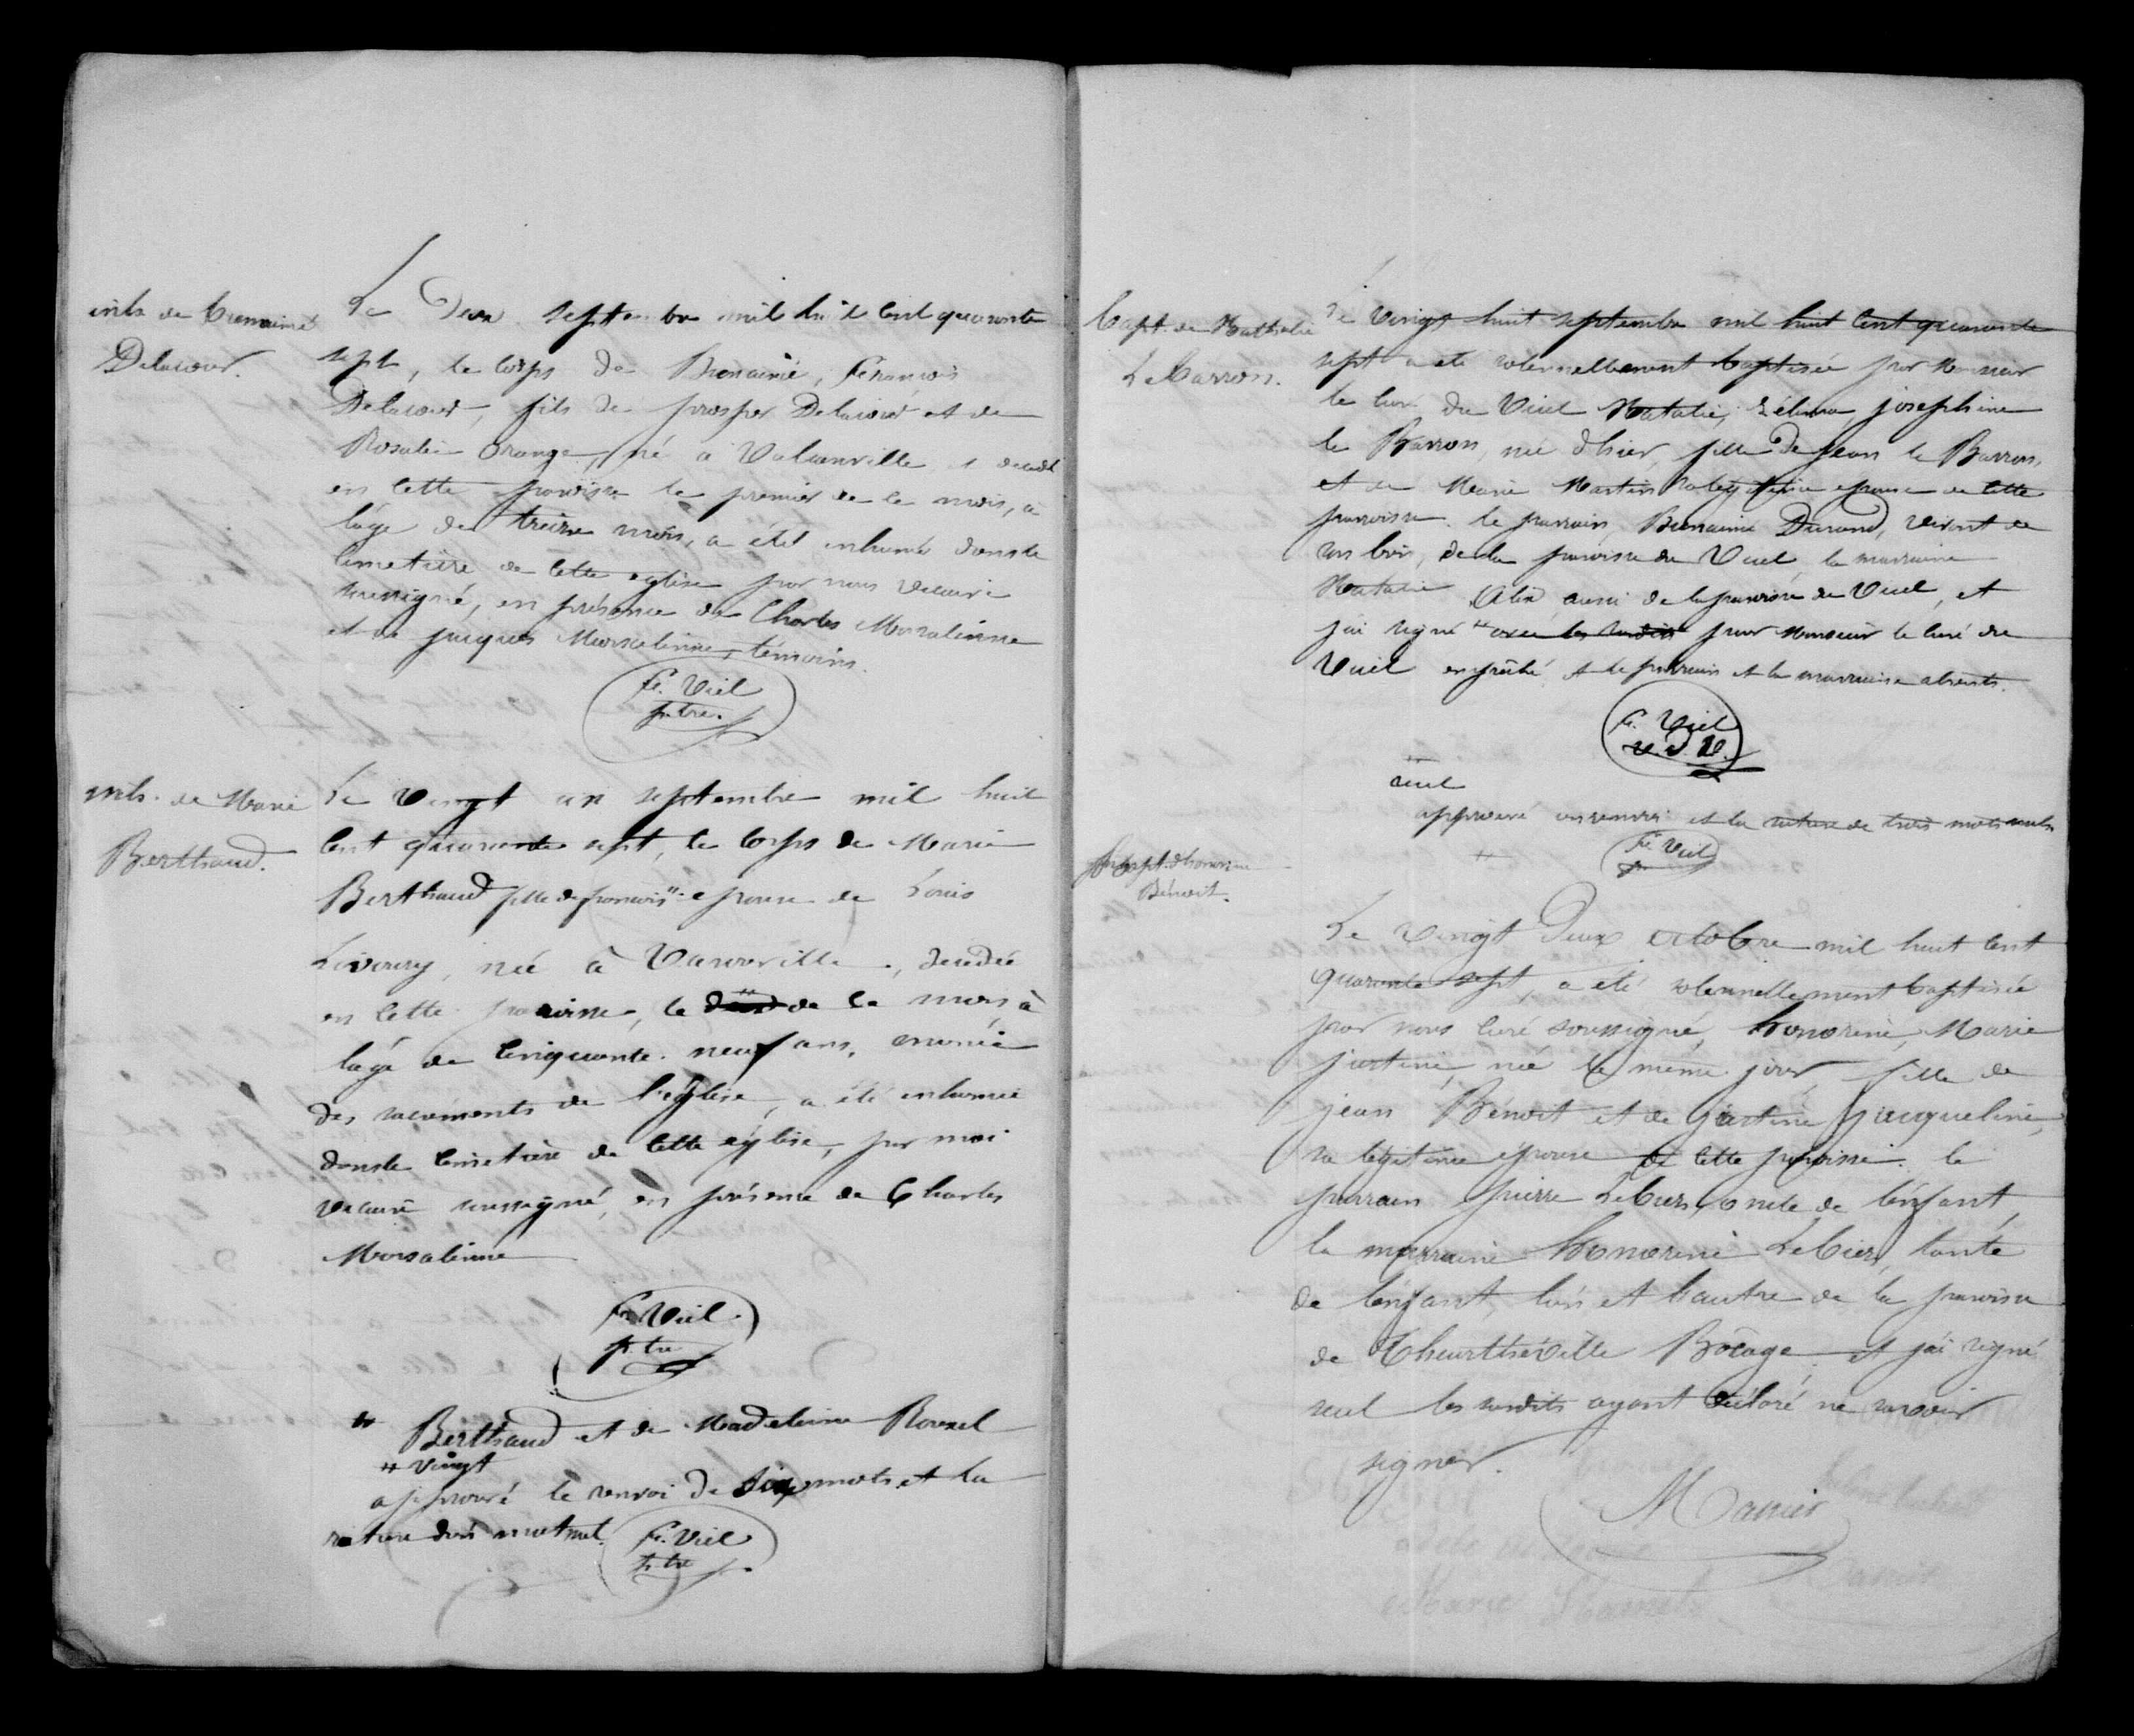 inh. de bienaimé
Delacour.
Le Deux septembre mil huit cent quarante
sept, le corps de Bienaimé, François
Delacour, fils de prosper Delacour et de
Rosalie orange, né à Valcanville et décédé
en cette paroisse le premier de ce mois, à
l'age de treize mois, a été inhumé dans le
Cimetière de cette eglise par nous vicaire
soussigné, en présence de Charles Morsalinne
et de jacques Morsalinne, témoins.
F. Viel
ptre.
inh. de Marie
Berthaud.
Le Vingt un septembre mil huit
cent quarante sept, le corps de Marie
Berthaud fille de francois " epouse de Louis
Livoury, née à Vanoville, décédée
en cette paroisse, le deux de ce mois, à
l'age de cinquante neuf ans, munie
des sacrements de l'église, a été inhumée
dans le cimetière de cette église, par moi
vicaire soussigné, en présence de Charles
Morsalinne
F. Viel.
ptre
" Berthaud et de Madeleine Rouxel
" vingt
approuvé le renvoi de six mots et la
rature d'un mot nul. F. Viel
ptre
Bapt. de Nathalie
LeBarron.
Le Vingt huit septembre mil huit cent quarante
sept a été solennellement baptisée par Monsieur
le curé du Vicel Natalie, Zélima, joséphine
le Barron, née d'hier, fille de Jean le Barron,
et de Marie Martin sa légitime épouse de cette
paroisse. le parrain Bienaimé Durand, vivant de
son bien, de la paroisse du Vicel, la marraine
Natalie Alix aussi de la paroisse du Vicel, et
j'ai signé " avec les susdits pour Monsieur le curé du
Vicel empêché et le parrain et la marraine absents.
F. Viel
v. d. V.
" seul
approuvé un renvoi et la rature de trois mots nuls
F. Viel
ptre
Bapt. d'honorine
Bénoit.
Le Vingt Deux octobre mil huit cent
quarante sept, a été solennellement baptisée
par nous curé soussigné, honorine, Marie
justine, née le même jour, fille de
jean Bénoit et de justine jacqueline,
sa légitime épouse de cette paroisse. le
parrain pierre LeCien, oncle de l'enfant,
la marraine honorine LeCien, tante
de l'enfant, l'un et l'autre de la paroisse
de Theurthéville Bocage, et j'ai signé
seul les susdits ayant déclaré ne savoir
signer.
Manier